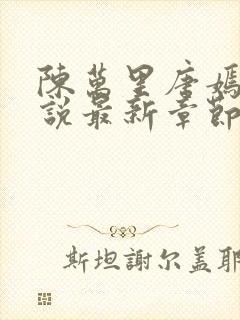 陳萬里唐嫣
說最新章節
斯坦謝尔盖耶